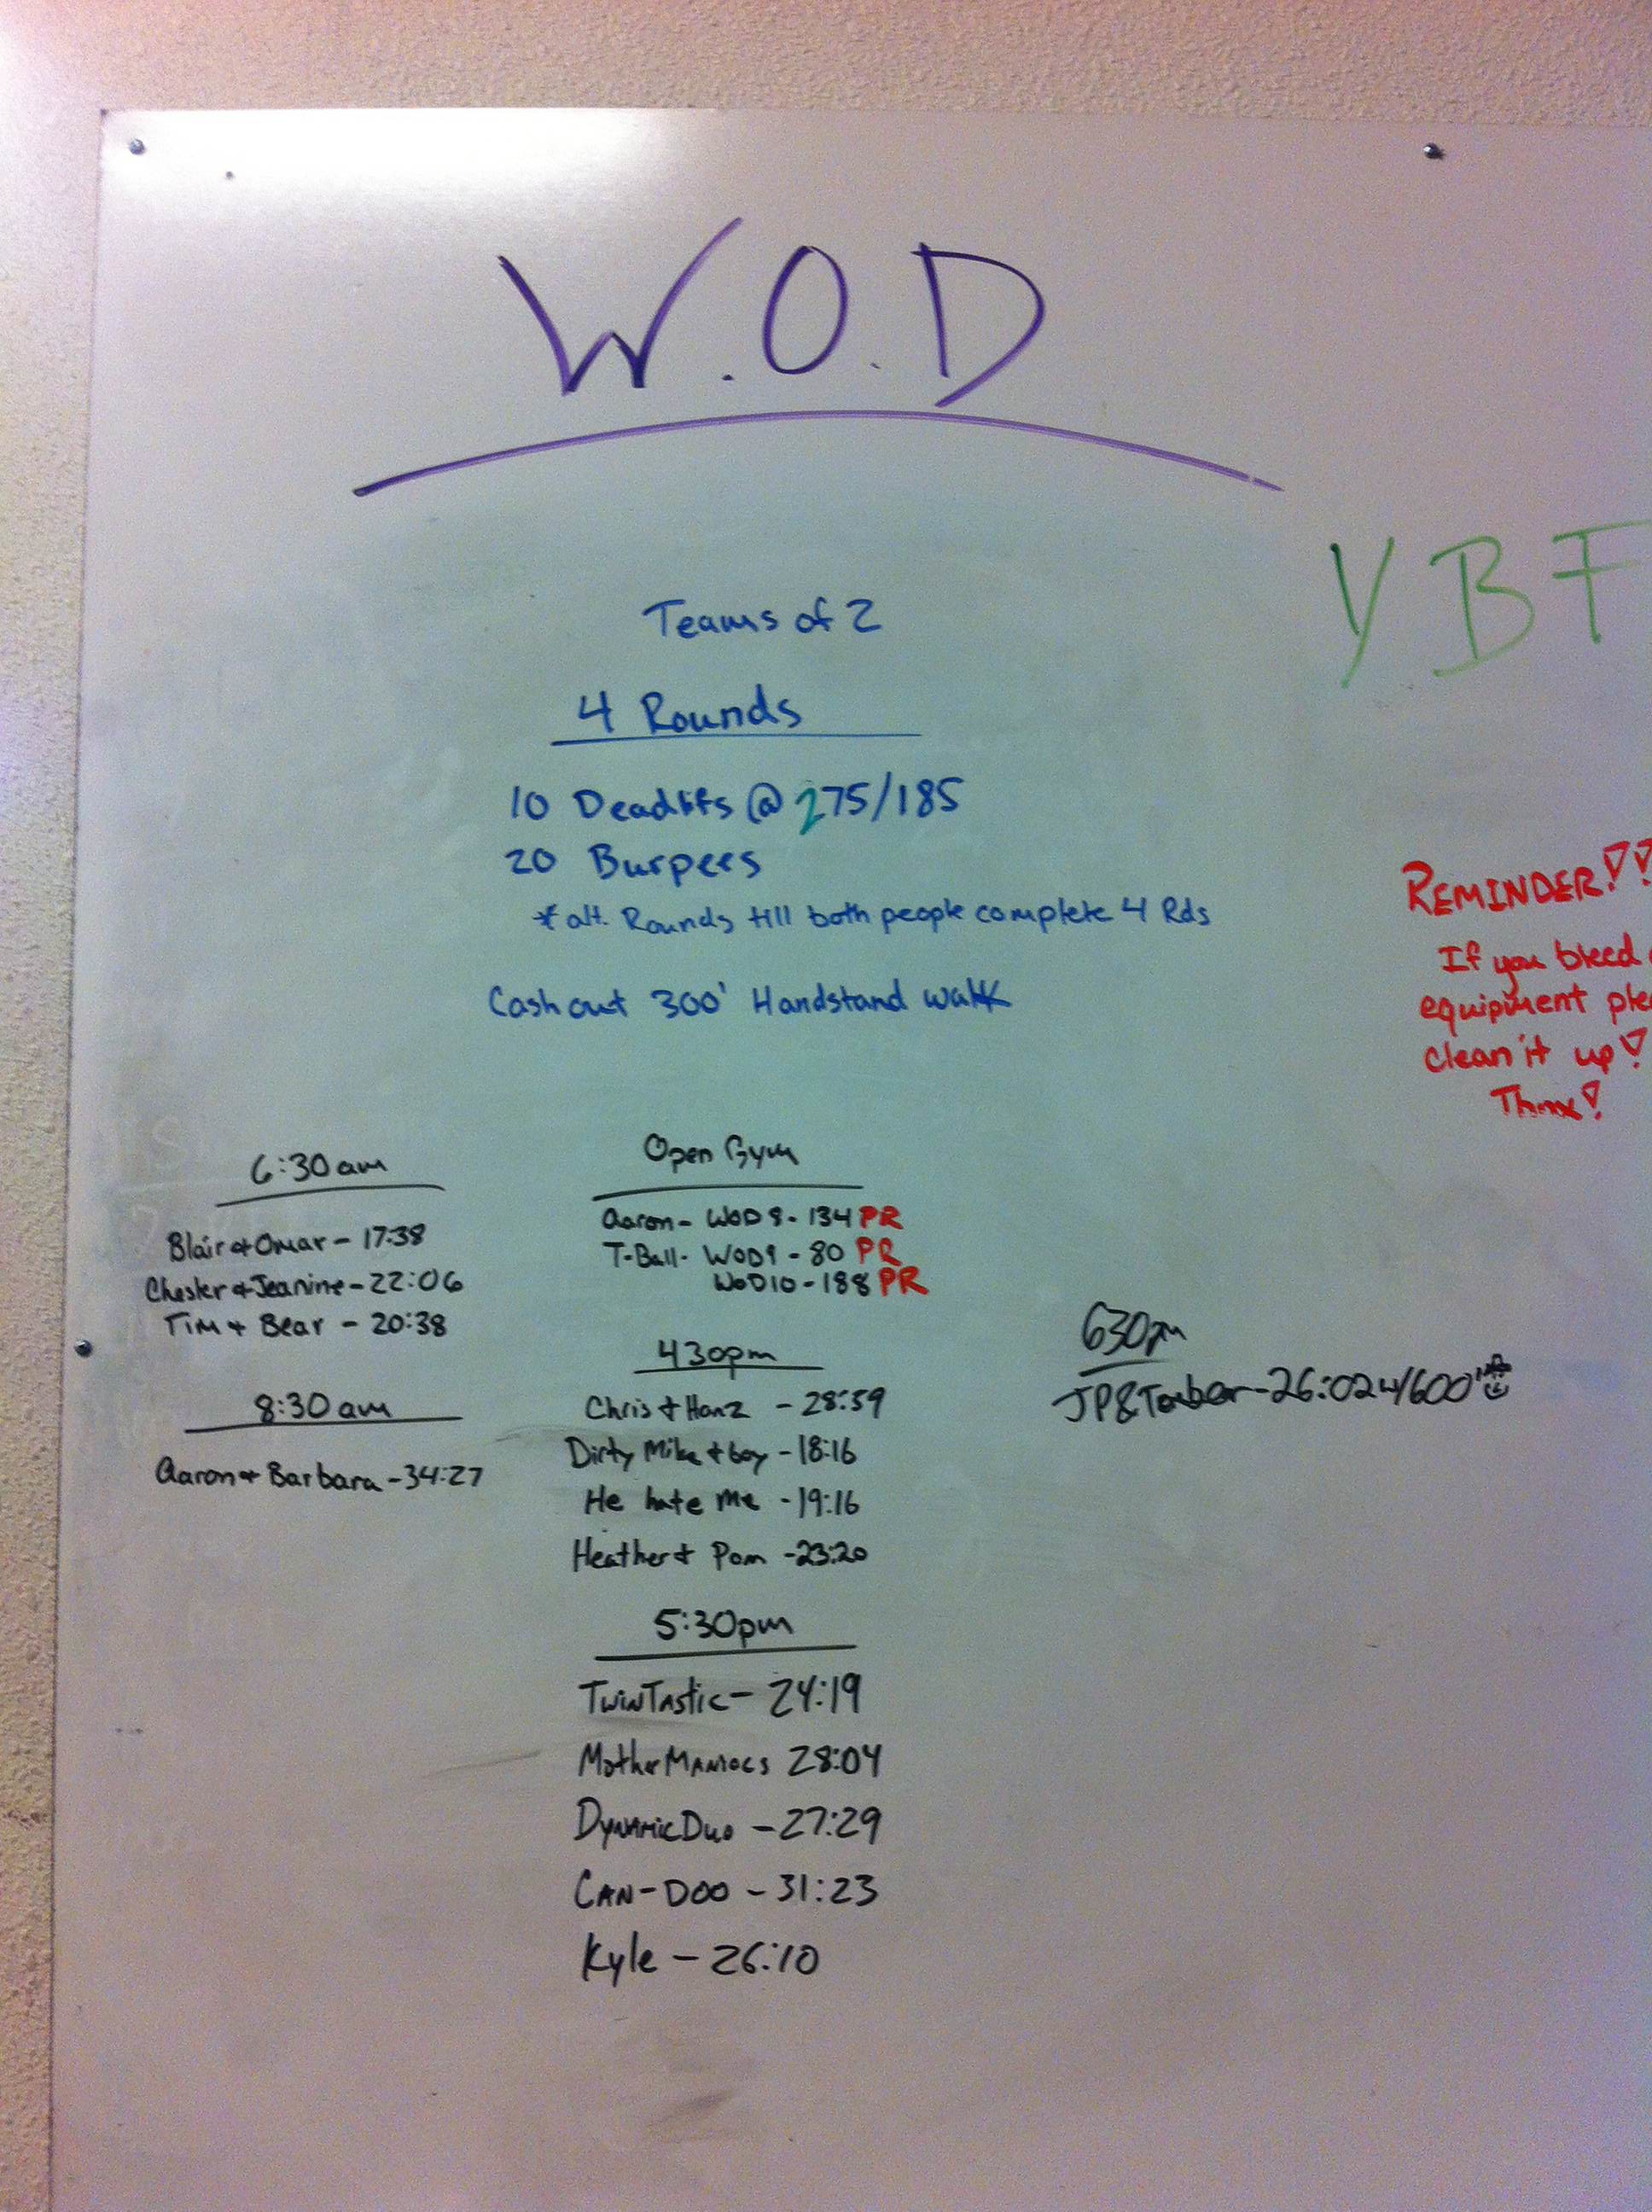 W.O.D
YBF
Teams of 2
4 Rounds
10 Deadlifts @ 275/185
20 Burpees
* alt. Rounds till both people complete 4 Rds
Cash out 300' Handstand walk
REMINDER!!
If you bleed
equipment
clean it up!
Thnx!
6:30 am
Blair + Omar - 17:38
Chester + Jeanine - 22:06
Tim + Bear - 20:38
8:30 am
Aaron + Barbara - 34:27
Open Gym
Aaron - WOD 8 - 134 PR
T-Ball - WOD9 - 80 PR
WOD10 - 188 PR
430pm
Chris + Hanz - 28:59
Dirty Mike + boy - 18:16
He hate me - 19:16
Heather + Pam - 23:20
5:30pm
TwinTastic - 24:19
MotherManiacs 28:04
DynamicDuo - 27:29
CAN-DOO - 31:23
Kyle - 26:10
630pm
JP& - 26:02 w/600'